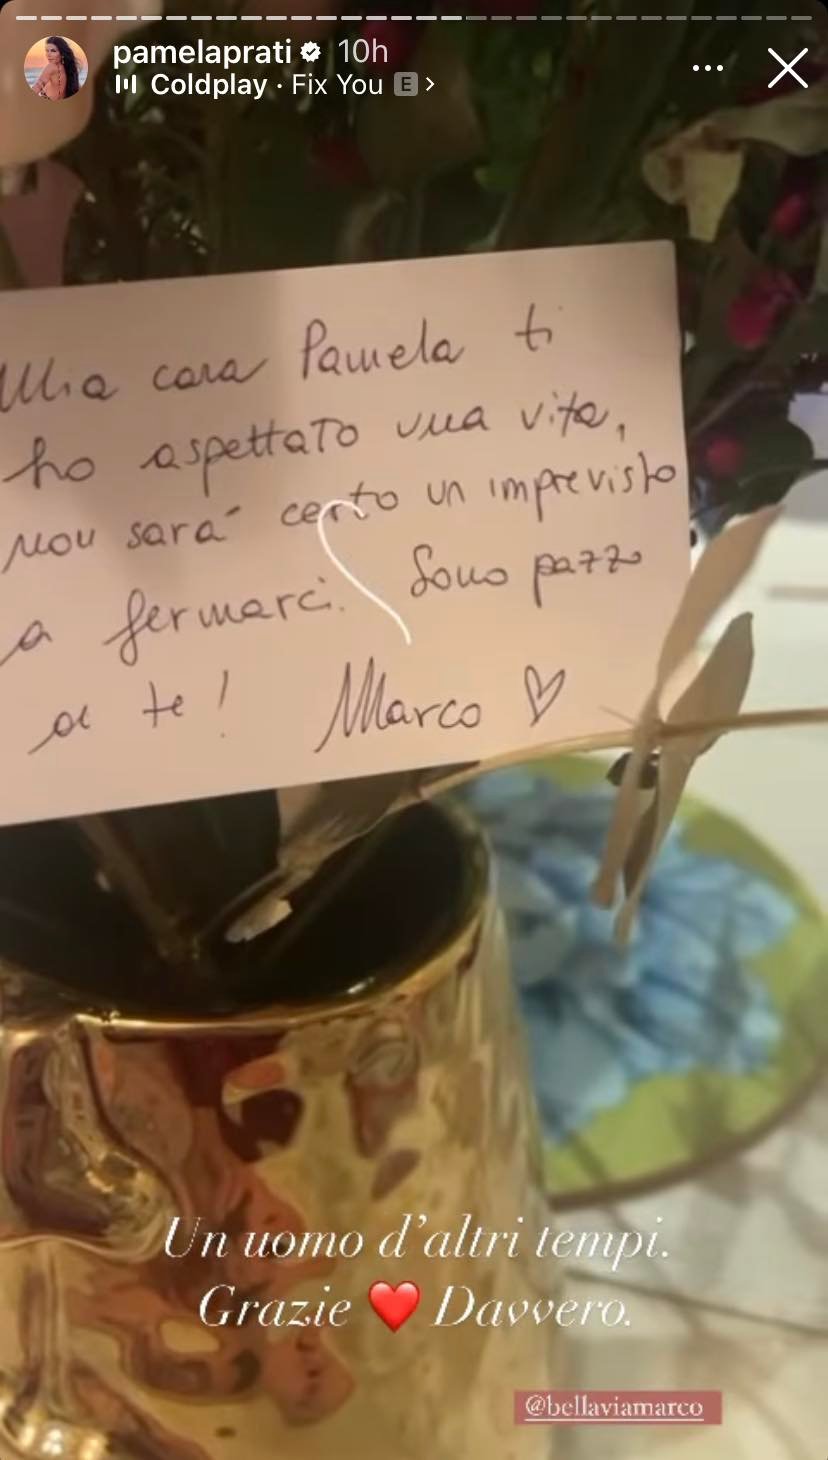 pamelaprati 10h
Coldplay · Fix You E >
Mia cara Pamela ti
ho aspettato una vita,
non sará certo un imprevisto
a fermarci. Sono pazzo
di te! Marco ♡
Un uomo d'altri tempi.
Grazie ❤️ Davvero.
@bellaviamarco